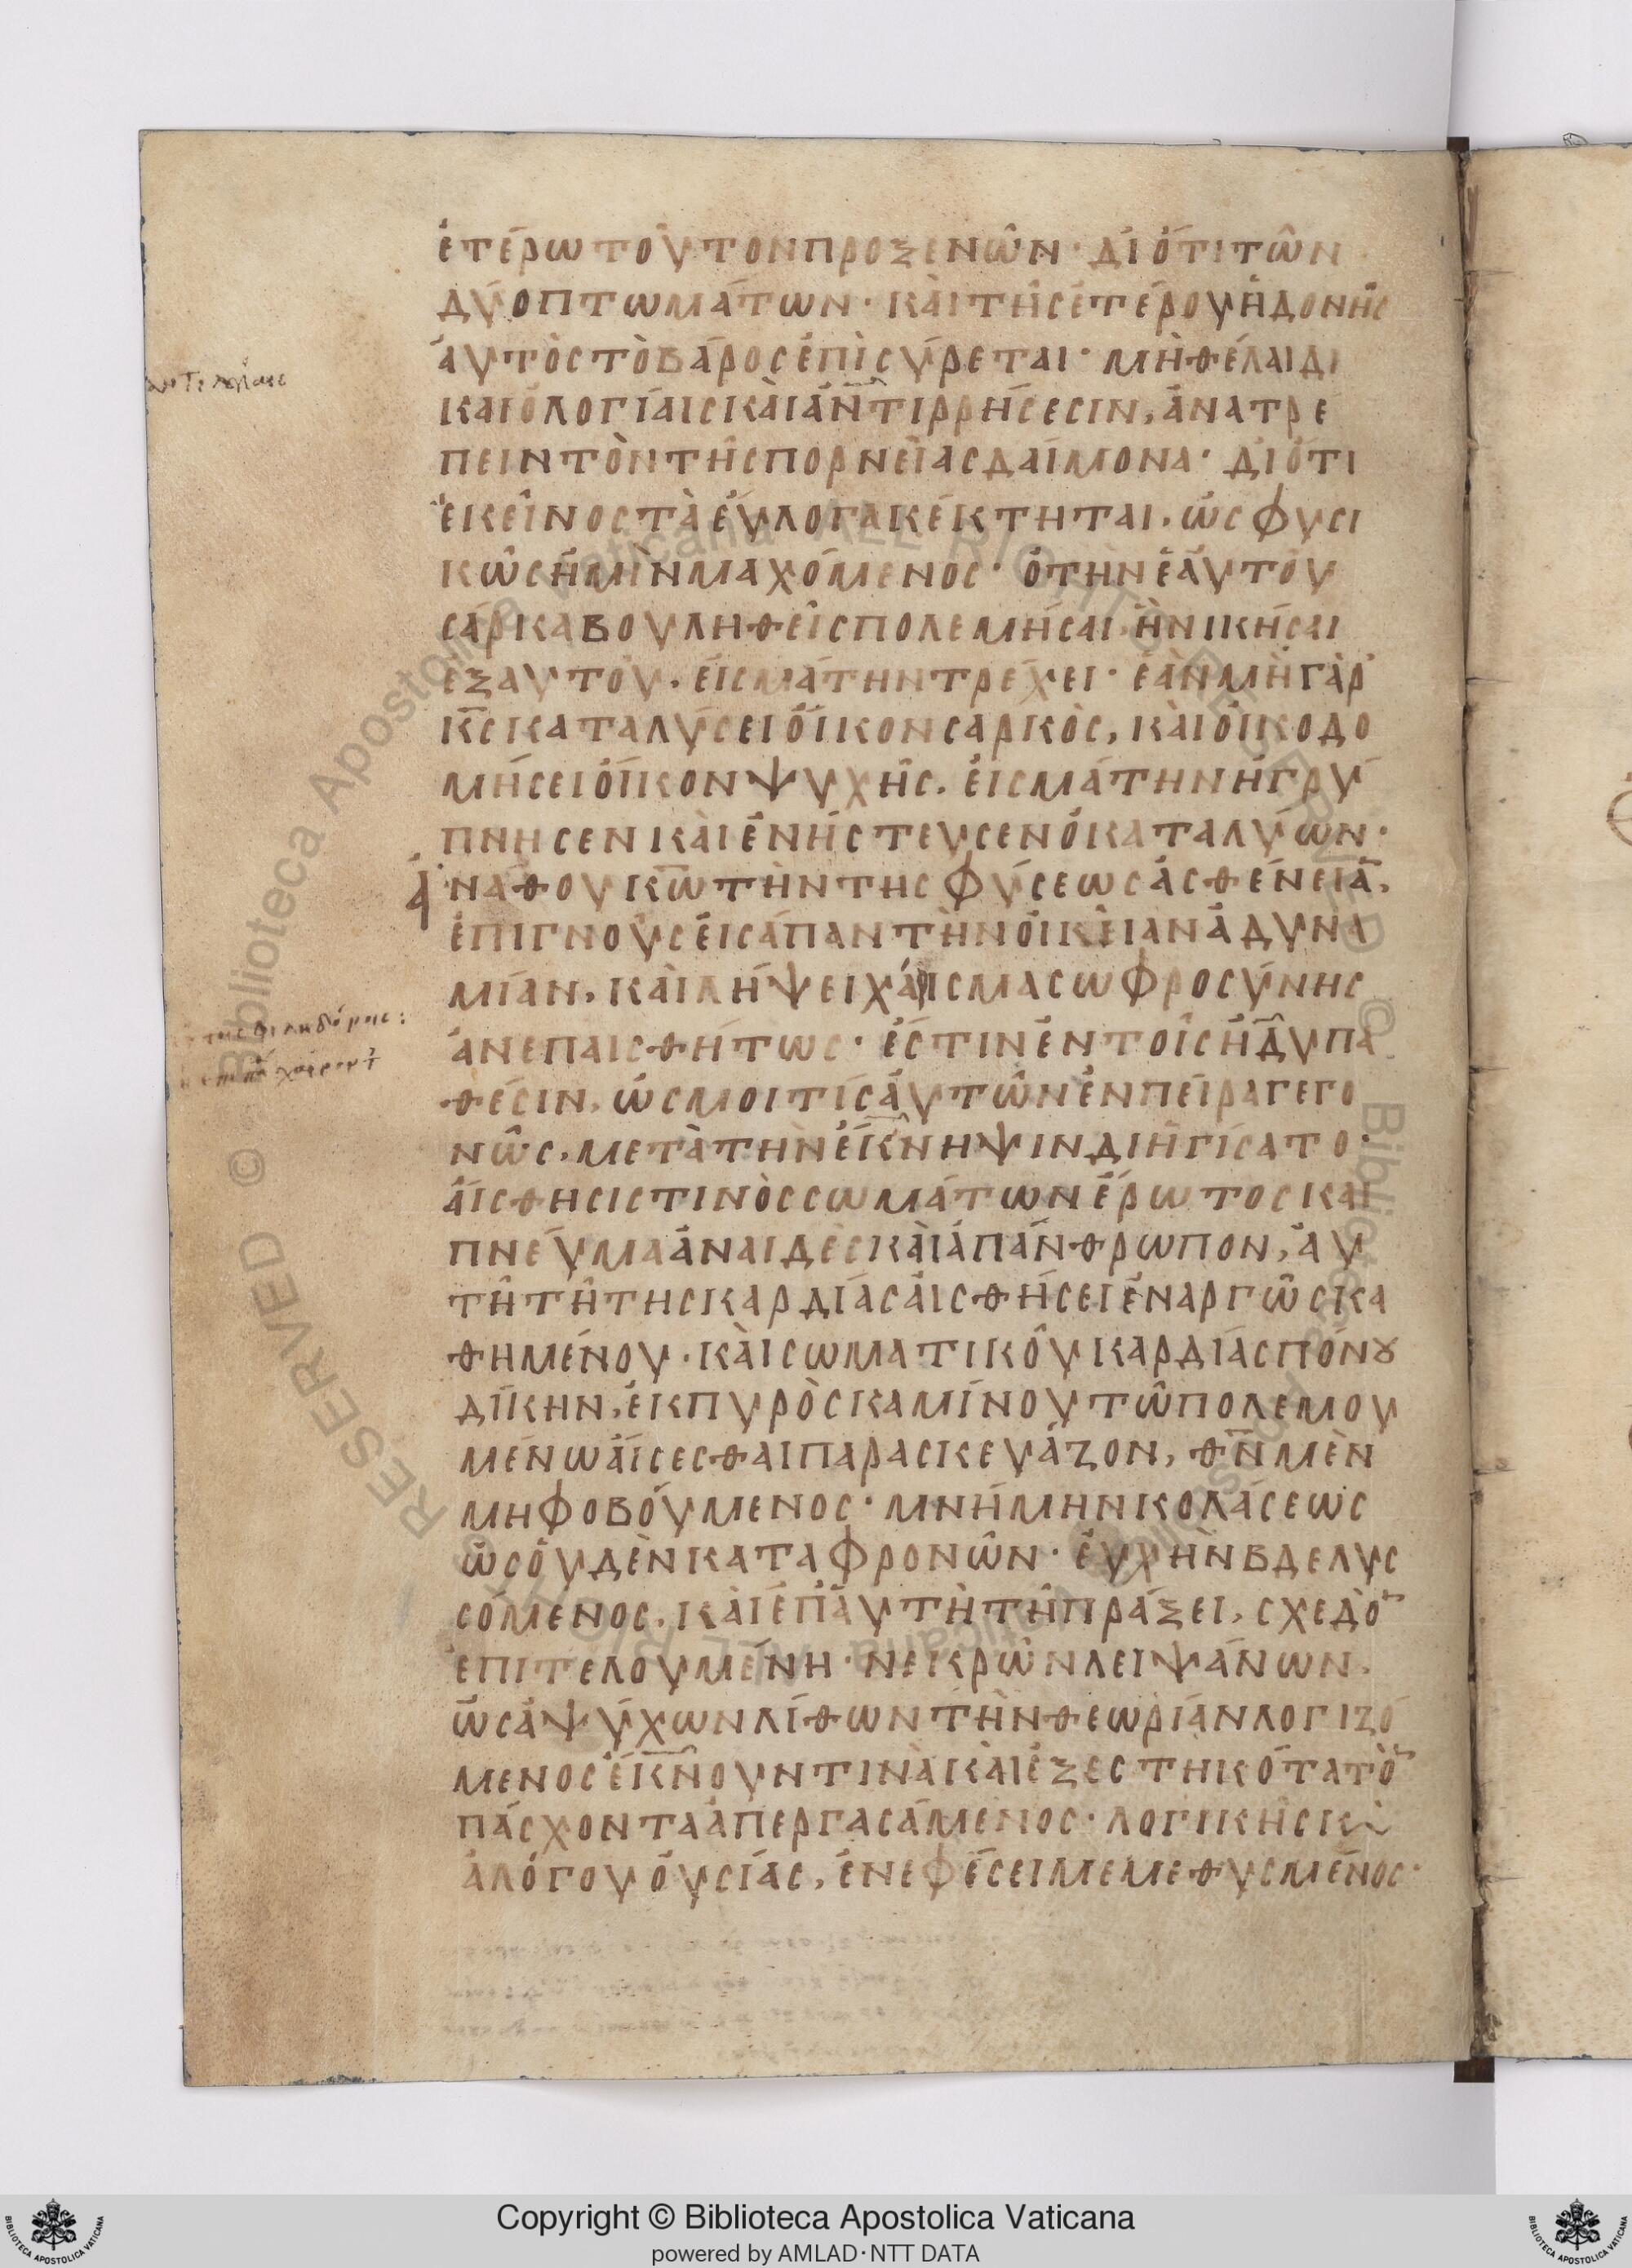 ἑτέρω τοῦτον προξενῶν· διότι τῶν
δύο πτωμάτων· καὶ τῆς ἑτέρου ἡδονῆς
αὐτὸς τὸ βάρος ἐπισύρεται· μὴ θέλαι δι
ἀντιλογίαις
καιολογίαις καὶ ἀντιρρήσεσιν, ἀνατρέ
πειν τὸν τῆς πορνείας δαίμονα· διότι
ἐκεῖνος τὰ εὔλογα κέκτηται, ὡς φυσι
κῶς ἡμὴν μαχόμενος· ὁ τὴν ἑαυτοῦ
σάρκα βουληθεὶς πολεμῆσαι ἢ νικῆσαι
ἐξ αὑτοῦ, εἰς μάτην τρέχει· ἐὰν μὴ γὰρ
κ̅ς̅ καταλύσει οἶκον σαρκὸς, καὶ οἰκοδο
μήσει οἶκον ψυχῆς, εἰς μάτην ἠγρύ
πνησεν καὶ ἐνήστευσεν ὁ καταλύων·
ἀνάθου κ̅ω̅ τὴν τῆς φύσεως ἀσθένεια̅,
ἐπιγνοὺς εἰς ἅπαν τὴν οἰκείαν ἀδυνα
μίαν, καὶ λήψει χάρισμα σωφροσύνης
ἀνεπαισθήτως· ἔστιν ἐν τοῖς ἡδυπα
τῆς φιληδόνοις:
θέσιν, ὥς μοι τίς αὐτῶν ἐν πείρα γεγο
νὼς, μετὰ τὴν ἔκνηψιν διηγίσατο·
αἴσθησις τινὸς σωμάτων ἔρωτος καὶ
πνεῦμα ἀναιδὲς καὶ ἀπάνθρωπον, αὐ
τῆ τῆ τῆς καρδίας αἰσθήσει ἐναργῶς κα
θημένου· καὶ σωματικοῦ καρδίας πόνου
δίκην, ἐκ πυρὸς καμίνου τῶ πολεμου
μένω αἴσεσθαι παρασκευάζον, θ̅ν̅ μὲν
μὴ φοβούμενος· μνήμην κολάσεως
ὡς οὐδὲν καταφρονῶν· εὐχὴν βδελυσ
σόμενος, καὶ ἐπ' αὐτῆ τῆ πράξει, σχεδὸν
ἐπιτελουμένη· νεκρῶν λειψάνων,
ὡς ἀψύχων λίθων τὴν θεωρίαν λογιζό
μενος ἔκνουν τινὰ καὶ ἐξεστηκότα τὸν
πάσχοντα ἀπεργασάμενος· λογικῆς καὶ
ἀλόγου οὐσίας, ἐν ἐφέσει μεμεθυσμένος·
Copyright © Biblioteca Apostolica Vaticana
powered by AMLAD·NTT DATA